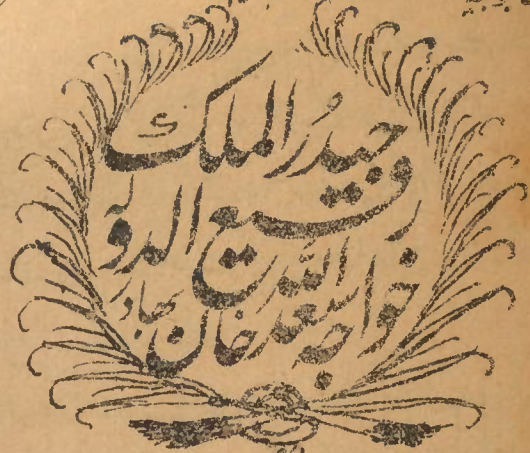 حیدرُ الملک
رفیع الدولہ
خواجہ سعد اللہ خان بہادر